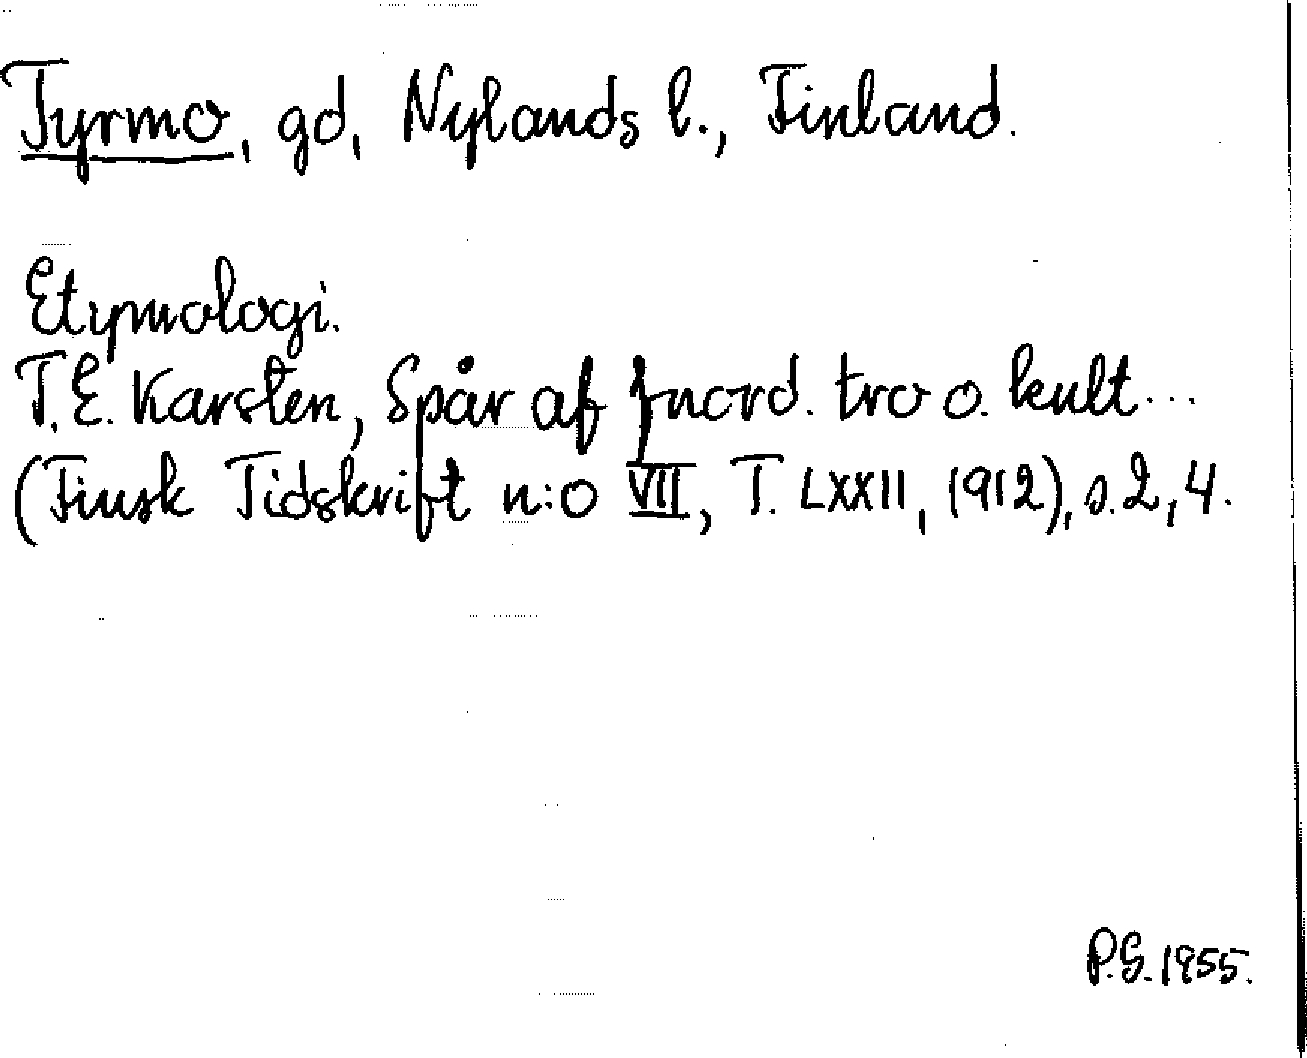 Tyrmo, gd, Nylands l., Finland.
Etymologi.
T.E. Karsten, Spår af fnord. tro o. kult...
(Finsk Tidskrift n:o VII, T. LXXII, 1912), s. 2, 4.
P.S. 1955.